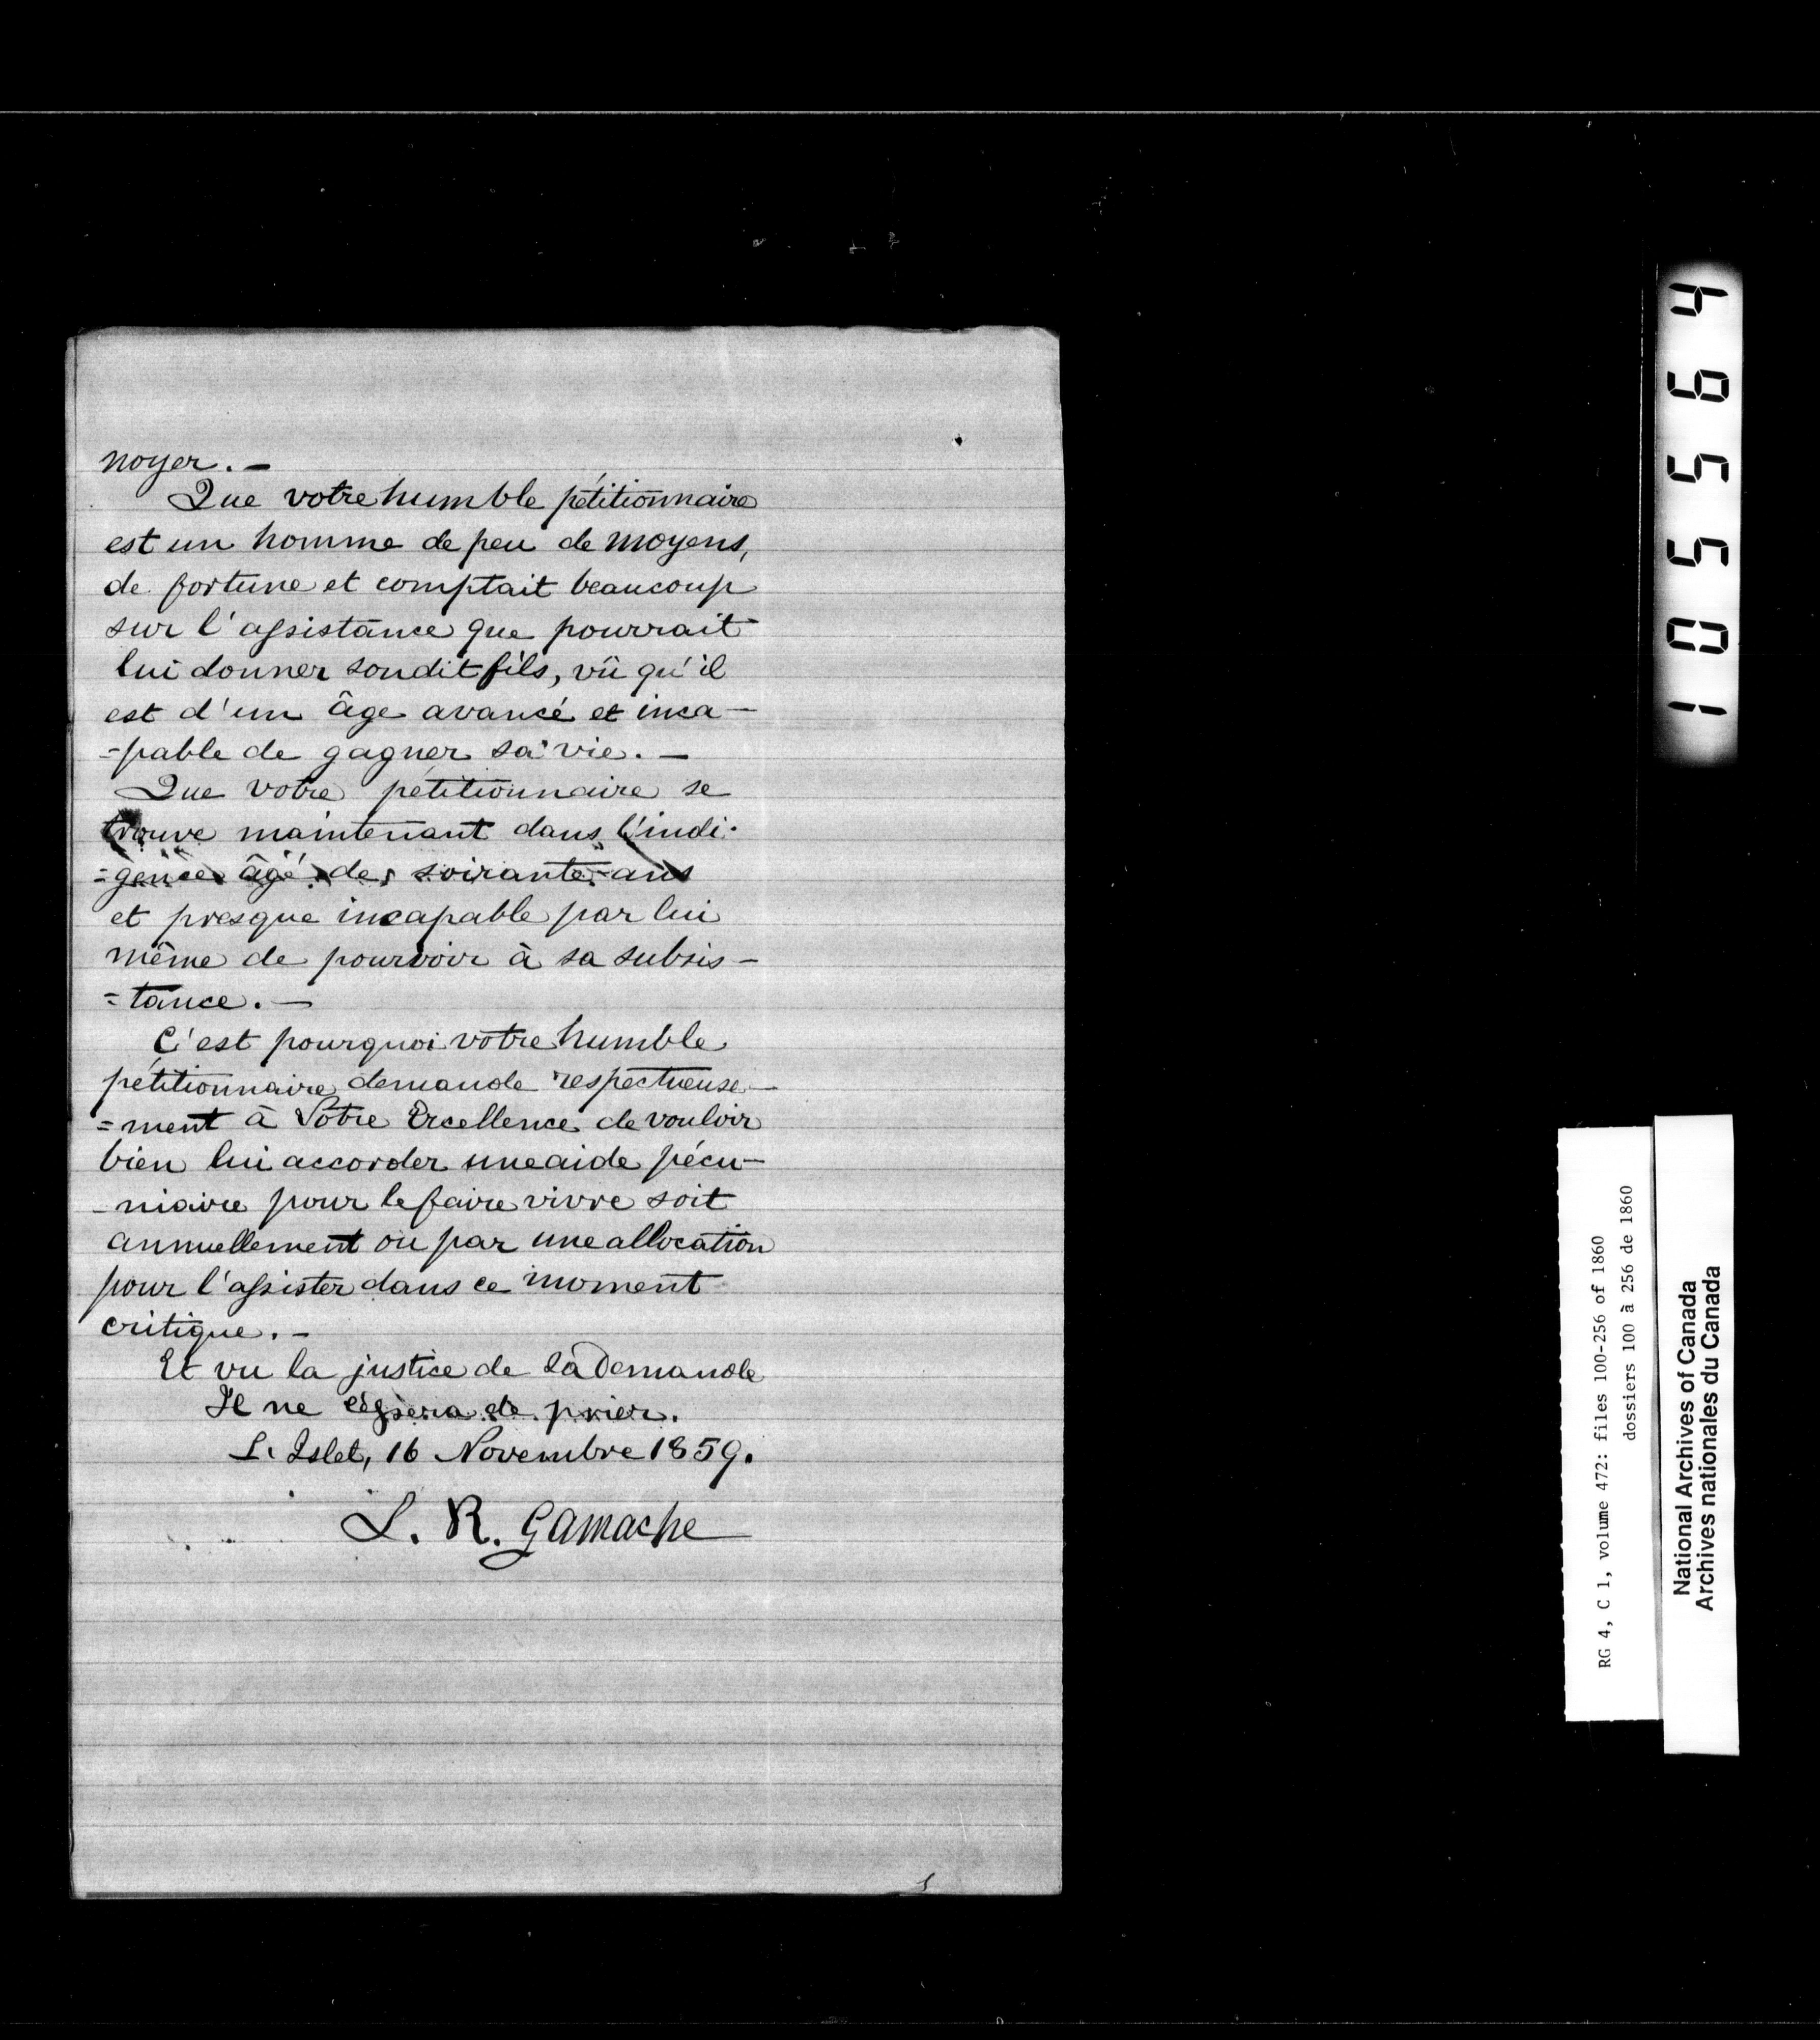 noyer. —
Que votre humble pétitionnaire
est un homme de peu de moyens,
de fortune et comptait beaucoup
sur l'assistance que pourrait
lui donner sondit fils, vû qu'il
est d'un âge avancé et inca-
=pable de gagner sa vie. —
Que votre pétitionnaire se
trouve maintenant dans l'indi-
=gence âgé de soixante ans
et presque incapable par lui
même de pourvoir à sa subsis-
=tance. —
C'est pourquoi votre humble
pétitionnaire demande respectueuse-
=ment à Votre Excellence de vouloir
bien lui accorder une aide pécu-
-niaire pour le faire vivre soit
annuellement ou par une allocation
pour l'assister dans ce moment
critique. —
Et vu la justice de sa Demande
Il ne cessera de prier.
L'Islet, 16 Novembre 1859.
L. R. Gamache
105564
RG 4, C 1, volume 472: files 100-256 of 1860
dossiers 100 à 256 de 1860
National Archives of Canada
Archives nationales du Canada